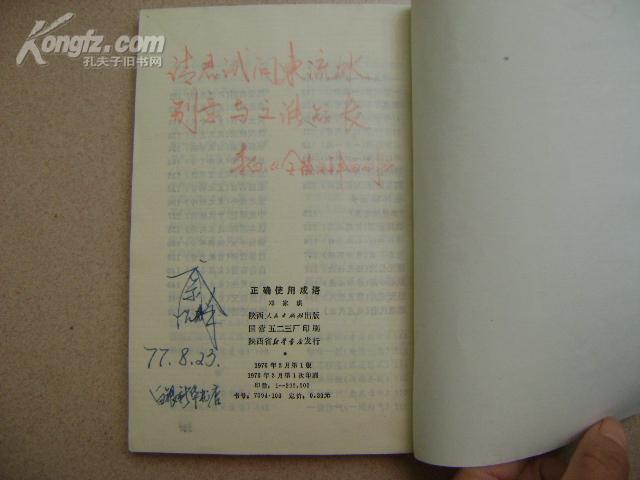 Kongfz.com
孔夫子旧书网
请君试问东流水
别意与之谁短长
李白《金陵酒肆留别》
77.8.23.
白银新华书店
正确使用成语
邓家琪
陕西人民出版社出版
国营五二三厂印刷
陕西省新华书店发行
1976年2月第1版
1976年3月第1次印刷
书号：7094·103 定价：0.39元